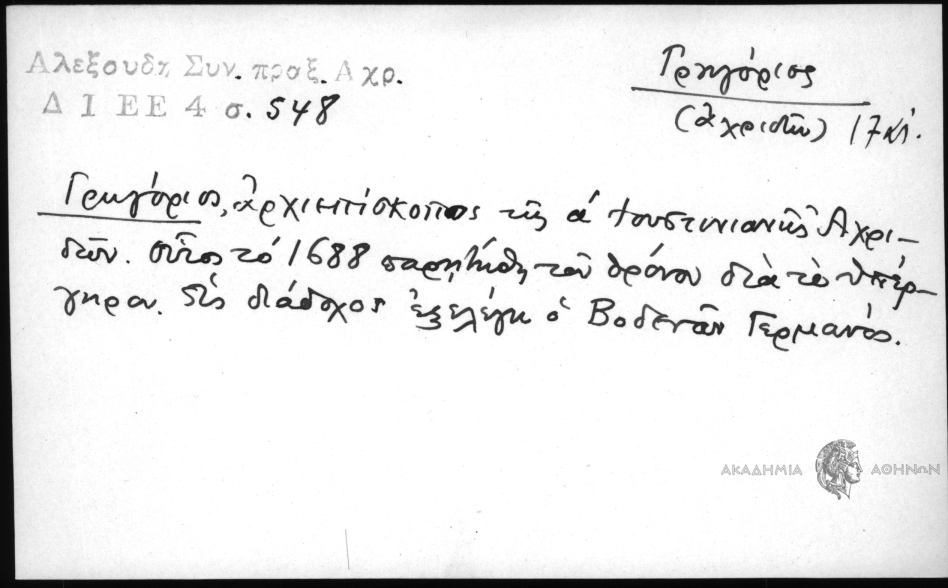 Αλεξουδη Συν. πραξ. Αχρ.
Δ Ι Ε Ε 4 σ. 548
Γρηγόριος
(Ἀχριδῶν) 17 αἰ.
Γρηγόριος, ἀρχιεπίσκοπος τῆς α΄ Ἰουστινιανῆς Ἀχρι-
δῶν. οὗτος τὸ 1688 παρῃτήθη τοῦ θρόνου διὰ τὸ ὑπέρ-
γηρον. διάδοχος ἐξελέγη ὁ Βοδενῶν Γερμανός.
ΑΚΑΔΗΜΙΑ ΑΘΗΝΩΝ